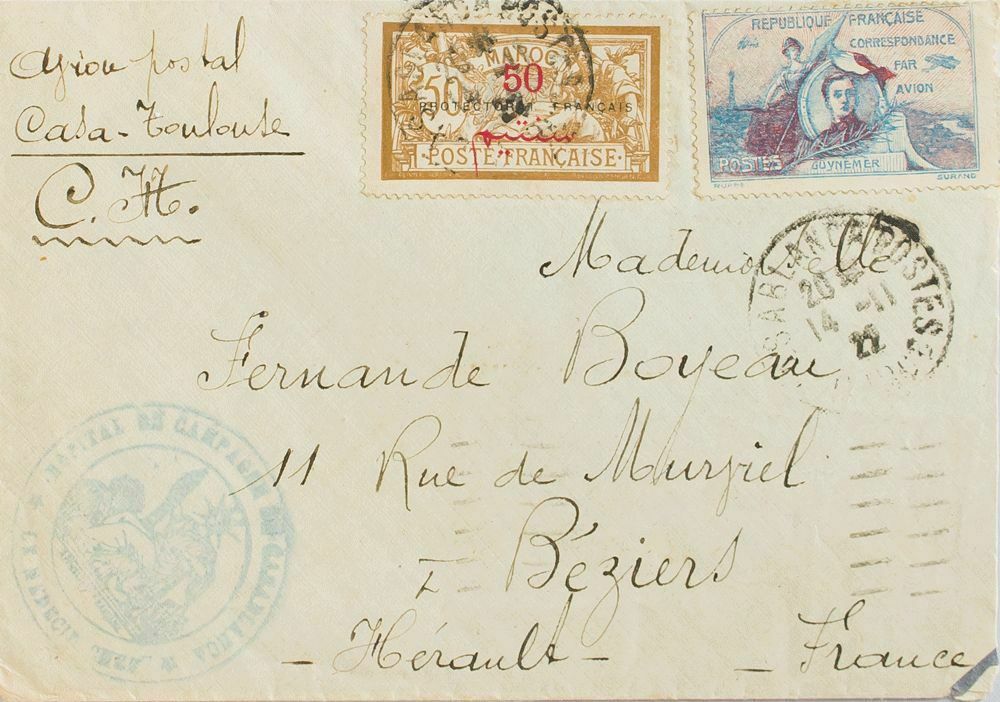 Avion postal
Casa-Toulouse
C.M.
MAROC
50
50
PROTECTORAT FRANÇAIS
سنتيم
POSTE FRANÇAISE
RÉPUBLIQUE FRANÇAISE
CORRESPONDANCE
PAR
AVION
POSTES
GUYNEMER
RUFFE
SURAND
CASABLANCA POSTES
20
14 -11
22
Mademoiselle
Fernande Boyeau
11 Rue de Murviel
Béziers
- Hérault -
- France
HOPITAL DE CAMPAGNE DE CASABLANCA